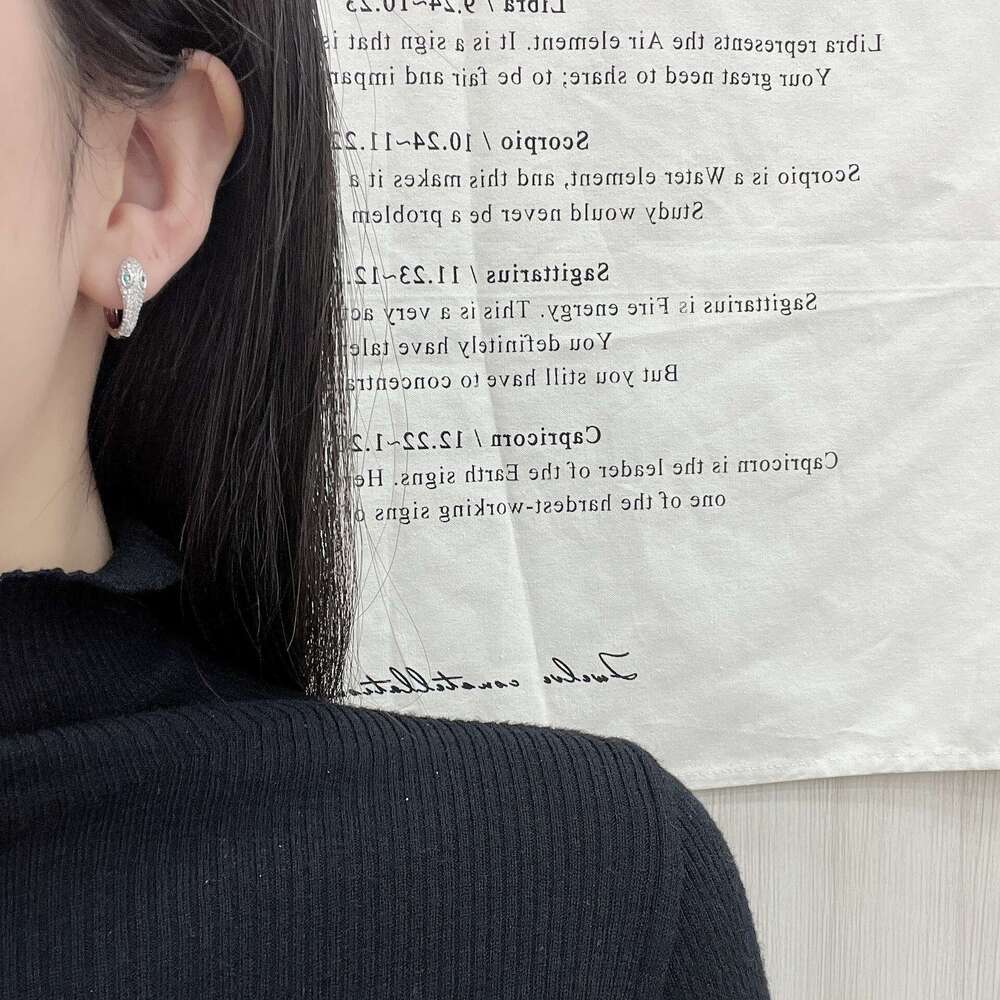 Libra / 9.24~10.23
Libra represents the Air element. It is a sign that is
Your great need to share; to be fair and impar
Scorpio / 10.24~11.22
Scorpio is a Water element, and this makes it a
Study would never be a problem
Sagittarius / 11.23~12.
Sagittarius is Fire energy. This is a very act
You definitely have talen
But you still have to concentra
Capricorn / 12.22~1.2
Capricorn is the leader of the Earth signs. He
one of the hardest-working signs o
Twelve constellatio